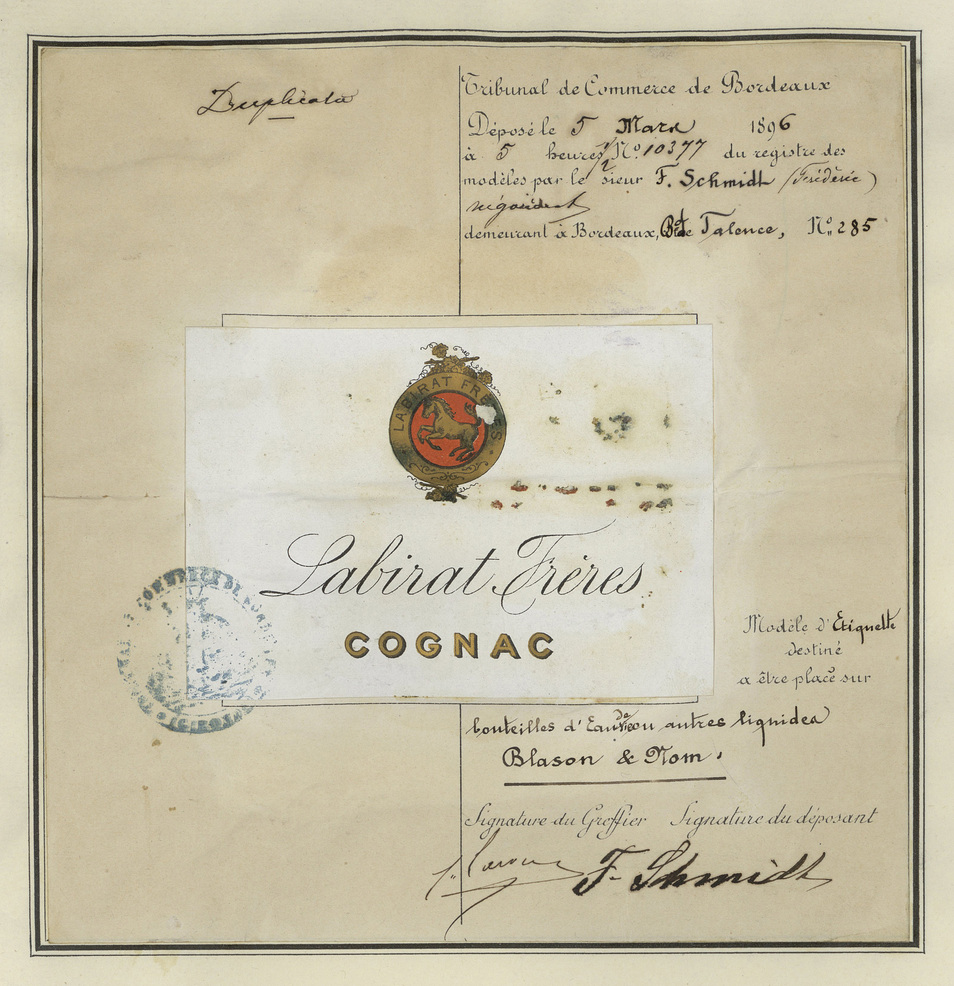 Duplicata
Tribunal de Commerce de Bordeaux
Déposé le 5 Mars 1896
à 5 heures 1/2 No. 10377 du registre des
modèles par le sieur F. Schmidt (Frédéric)
négociant
demeurant à Bordeaux, Rte de Talence, No. 285
LABIRAT FRÈRES
Labirat Frères
COGNAC
Modèle d'Etiquette
destiné
a être placé sur
bouteilles d'Eau de Vie ou autres liquides
Blason & Nom.
Signature du Greffier Signature du déposant
F. Schmidt